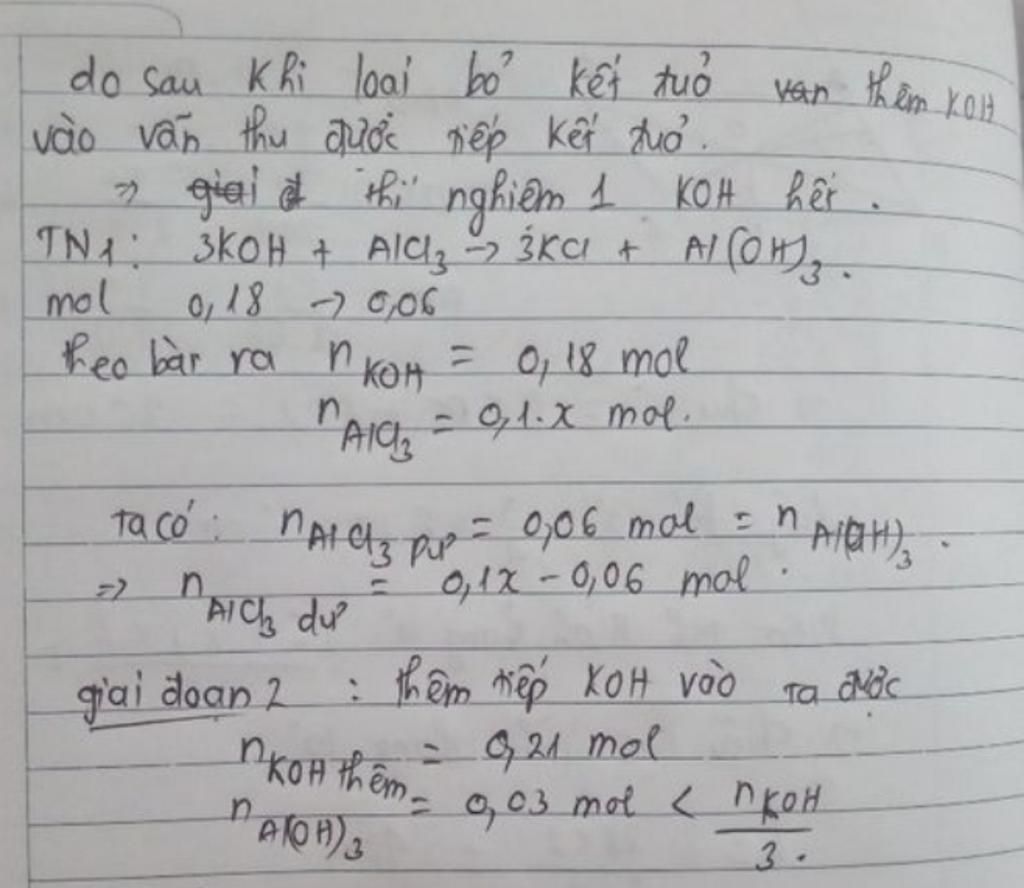 do sau khi loại bỏ kết tuả van thêm KOH
vào vẫn thu được tiếp kết tuả.
=> giai đ thí nghiệm 1 KOH hết.
TN1: 3KOH + AlCl₃ → 3KCl + Al(OH)₃.
mol 0,18 → 0,06
theo bàr ra n KOH = 0,18 mol
n AlCl₃ = 0,1.x mol.
ta có: n AlCl₃ pư = 0,06 mol = n Al(OH)₃.
=> n AlCl₃ dư = 0,1x - 0,06 mol.
giai đoạn 2 : thêm tiếp KOH vào ta được
n KOH thêm = 0,21 mol
n Al(OH)₃ = 0,03 mol < n KOH / 3.